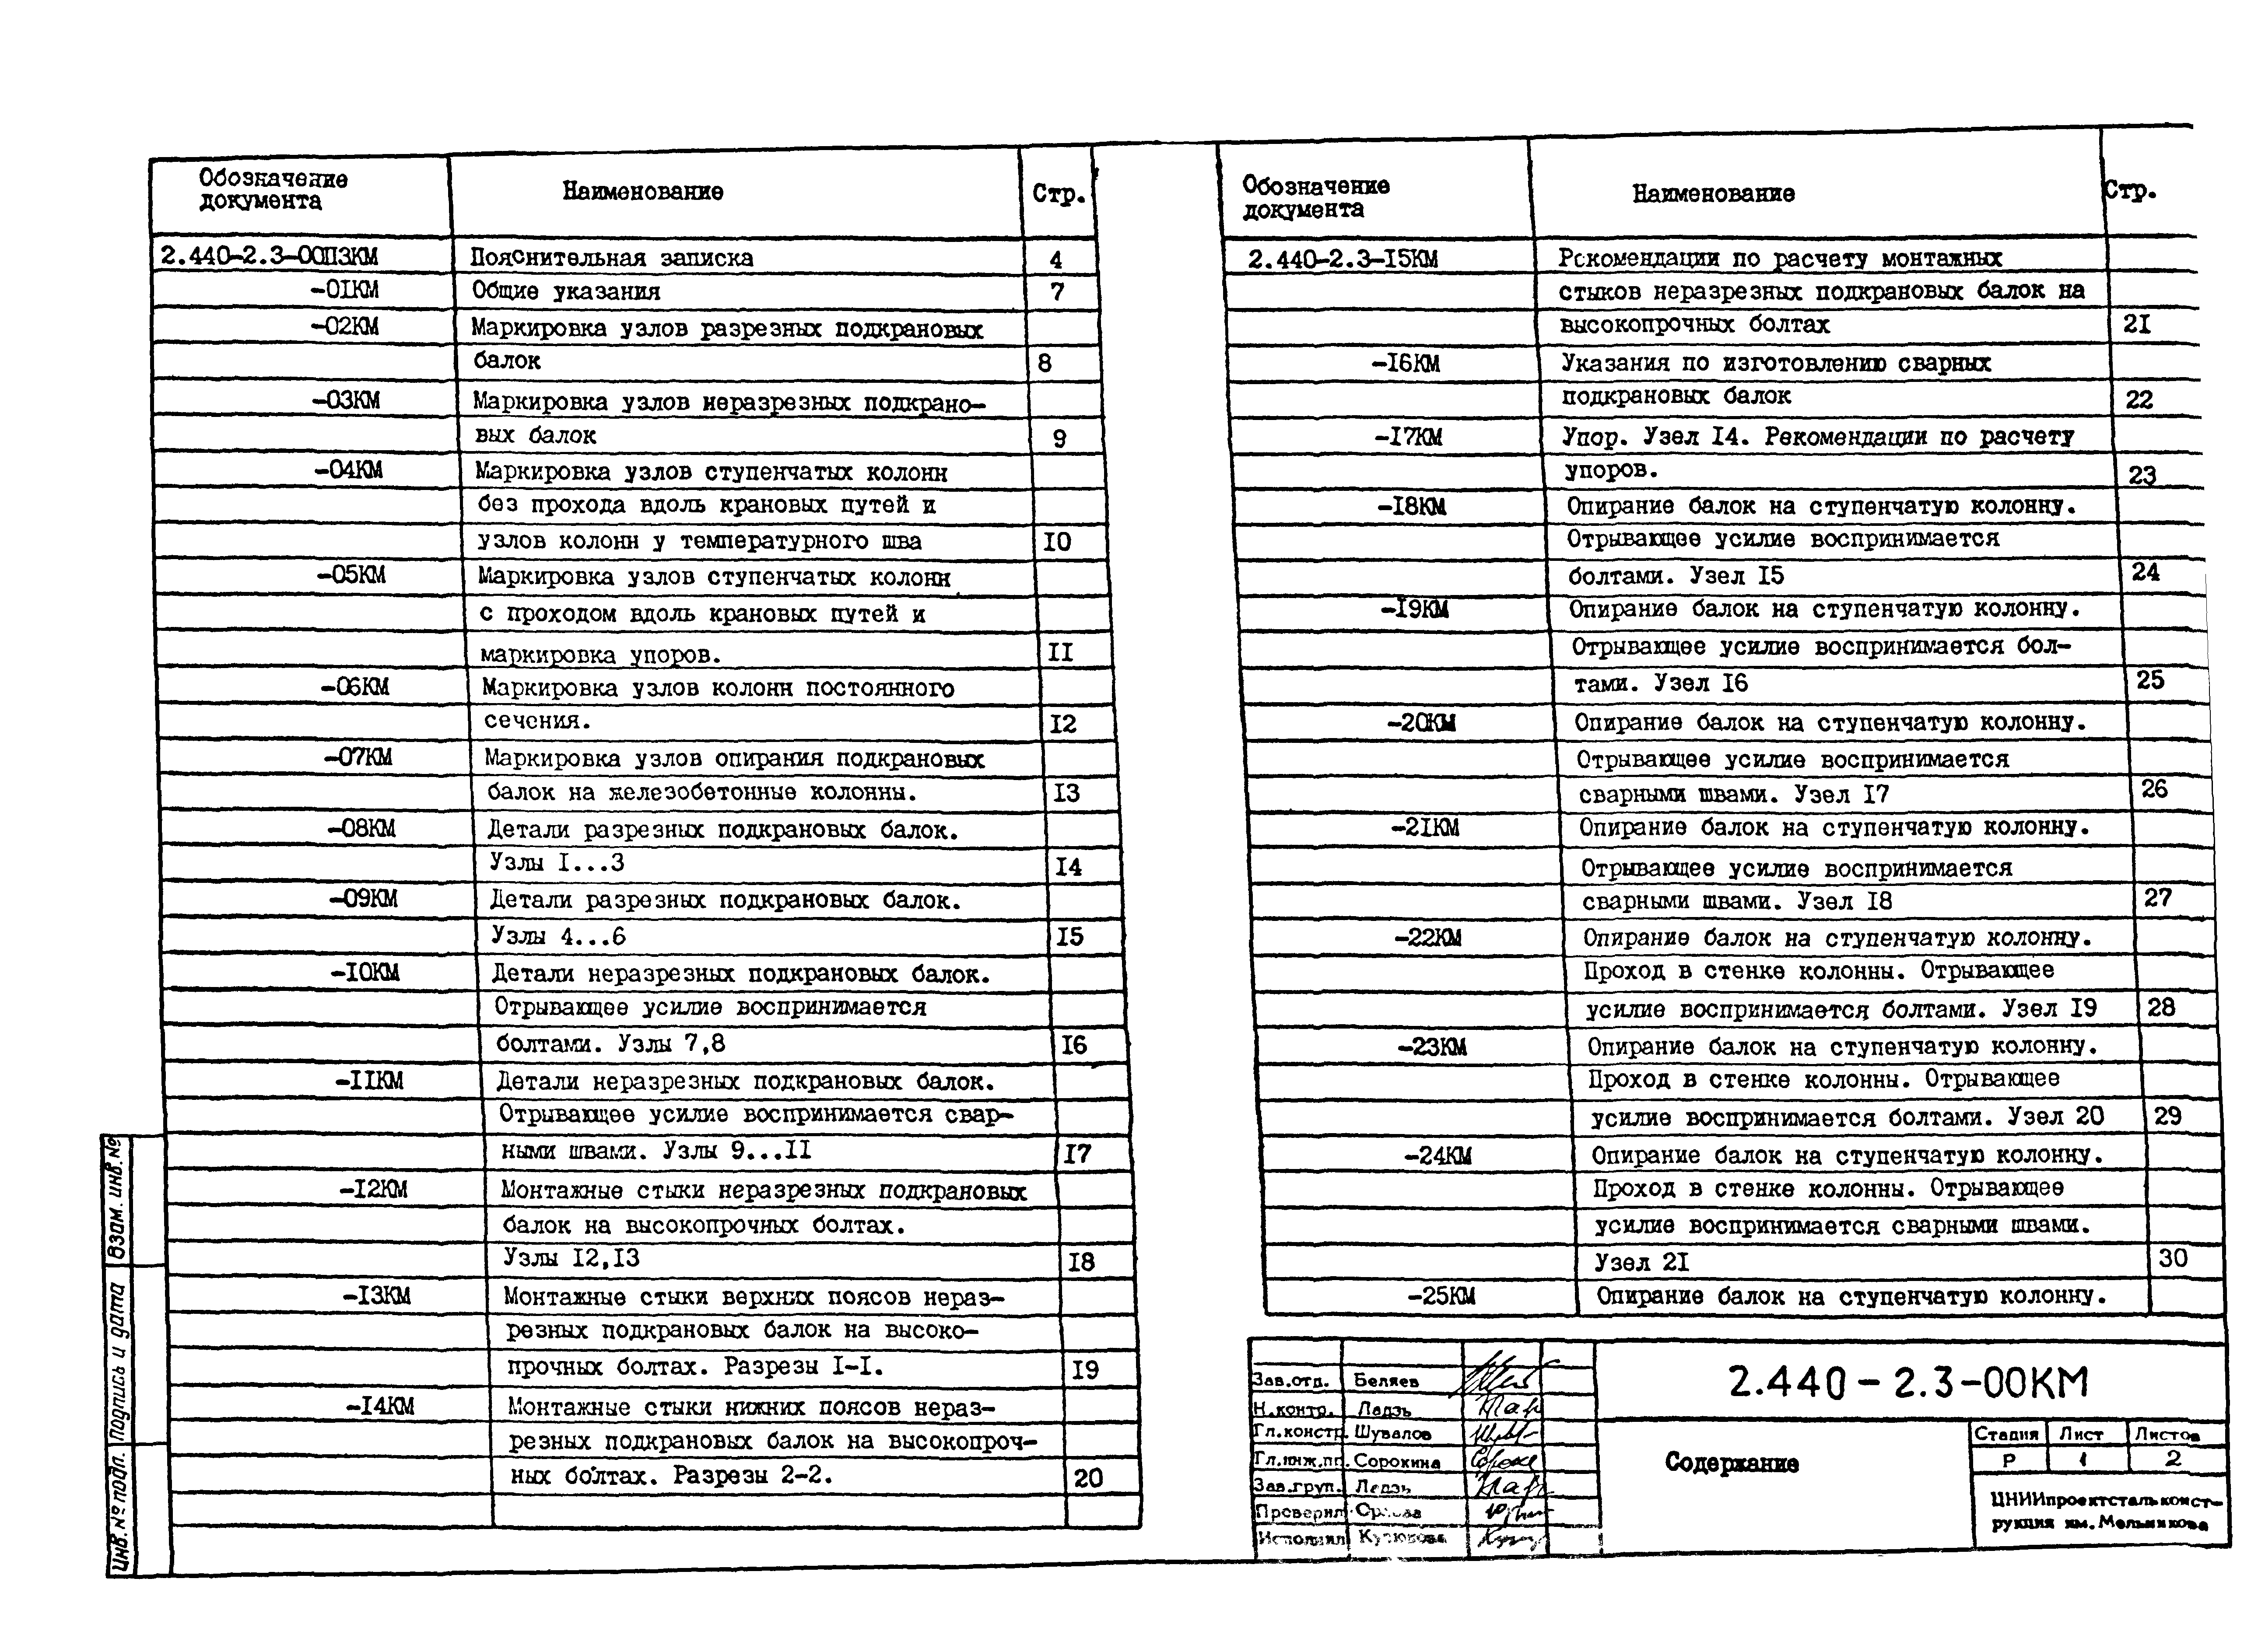 Обозначение документа | Наименование | Стр.
2.440-2.3-00ПЗКМ | Пояснительная записка | 4
-01КМ | Общие указания | 7
-02КМ | Маркировка узлов разрезных подкрановых
балок | 8
-03КМ | Маркировка узлов неразрезных подкрано-
вых балок | 9
-04КМ | Маркировка узлов ступенчатых колонн
без прохода вдоль крановых путей и
узлов колонн у температурного шва | 10
-05КМ | Маркировка узлов ступенчатых колонн
с проходом вдоль крановых путей и
маркировка упоров. | 11
-06КМ | Маркировка узлов колонн постоянного
сечения. | 12
-07КМ | Маркировка узлов опирания подкрановых
балок на железобетонные колонны. | 13
-08КМ | Детали разрезных подкрановых балок.
Узлы 1...3 | 14
-09КМ | Детали разрезных подкрановых балок.
Узлы 4...6 | 15
-10КМ | Детали неразрезных подкрановых балок.
Отрывающее усилие воспринимается
болтами. Узлы 7,8 | 16
-11КМ | Детали неразрезных подкрановых балок.
Отрывающее усилие воспринимается свар-
ными швами. Узлы 9...11 | 17
-12КМ | Монтажные стыки неразрезных подкрановых
балок на высокопрочных болтах.
Узлы 12,13 | 18
-13КМ | Монтажные стыки верхних поясов нераз-
резных подкрановых балок на высоко-
прочных болтах. Разрезы 1-1. | 19
-14КМ | Монтажные стыки нижних поясов нераз-
резных подкрановых балок на высокопроч-
ных болтах. Разрезы 2-2. | 20
Обозначение документа | Наименование | Стр.
2.440-2.3-15КМ | Рекомендации по расчету монтажных
стыков неразрезных подкрановых балок на
высокопрочных болтах | 21
-16КМ | Указания по изготовлению сварных
подкрановых балок | 22
-17КМ | Упор. Узел 14. Рекомендации по расчету
упоров. | 23
-18КМ | Опирание балок на ступенчатую колонну.
Отрывающее усилие воспринимается
болтами. Узел 15 | 24
-19КМ | Опирание балок на ступенчатую колонну.
Отрывающее усилие воспринимается бол-
тами. Узел 16 | 25
-20КМ | Опирание балок на ступенчатую колонну.
Отрывающее усилие воспринимается
сварными швами. Узел 17 | 26
-21КМ | Опирание балок на ступенчатую колонну.
Отрывающее усилие воспринимается
сварными швами. Узел 18 | 27
-22КМ | Опирание балок на ступенчатую колонну.
Проход в стенке колонны. Отрывающее
усилие воспринимается болтами. Узел 19 | 28
-23КМ | Опирание балок на ступенчатую колонну.
Проход в стенке колонны. Отрывающее
усилие воспринимается болтами. Узел 20 | 29
-24КМ | Опирание балок на ступенчатую колонну.
Проход в стенке колонны. Отрывающее
усилие воспринимается сварными швами.
Узел 21 | 30
-25КМ | Опирание балок на ступенчатую колонну.
Зав.отд. Беляев
Н.контр. Ладзь
Гл.констр. Шувалов
Гл.инж.пр. Сорокина
Зав.груп. Ладзь
Проверил
Исполнил
2.440-2.3-00КМ
Содержание
Стадия Лист Листов
Р 1 2
ЦНИИпроектстальконст-
рукция им.Мельникова
Взам. инв.№
Подпись и дата
Инв.№ подл.